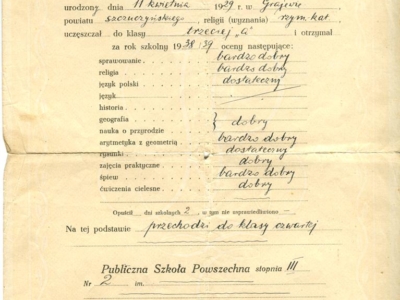 urodzony, dnia 11 kwietnia 1929 r. w Grajewie
powiatu szczuczyńskiego, religii (wyznania) rzym. kat.
uczęszczał do klasy trzeciej „a" i otrzymał
za rok szkolny 1938/39 oceny następujące:
sprawowanie bardzo dobry
religia bardzo dobry
język polski dostateczny
język
historia
geografia
nauka o przyrodzie } dobry
arytmetyka z geometrią bardzo dobry
rysunki dostateczny
zajęcia praktyczne dobry
śpiew bardzo dobry
ćwiczenia cielesne dobry
Opuścił dni szkolnych 2, w tym nie usprawiedliwiono —
Na tej podstawie przechodzi do klasy czwartej
Publiczna Szkoła Powszechna stopnia III
Nr 2 im.